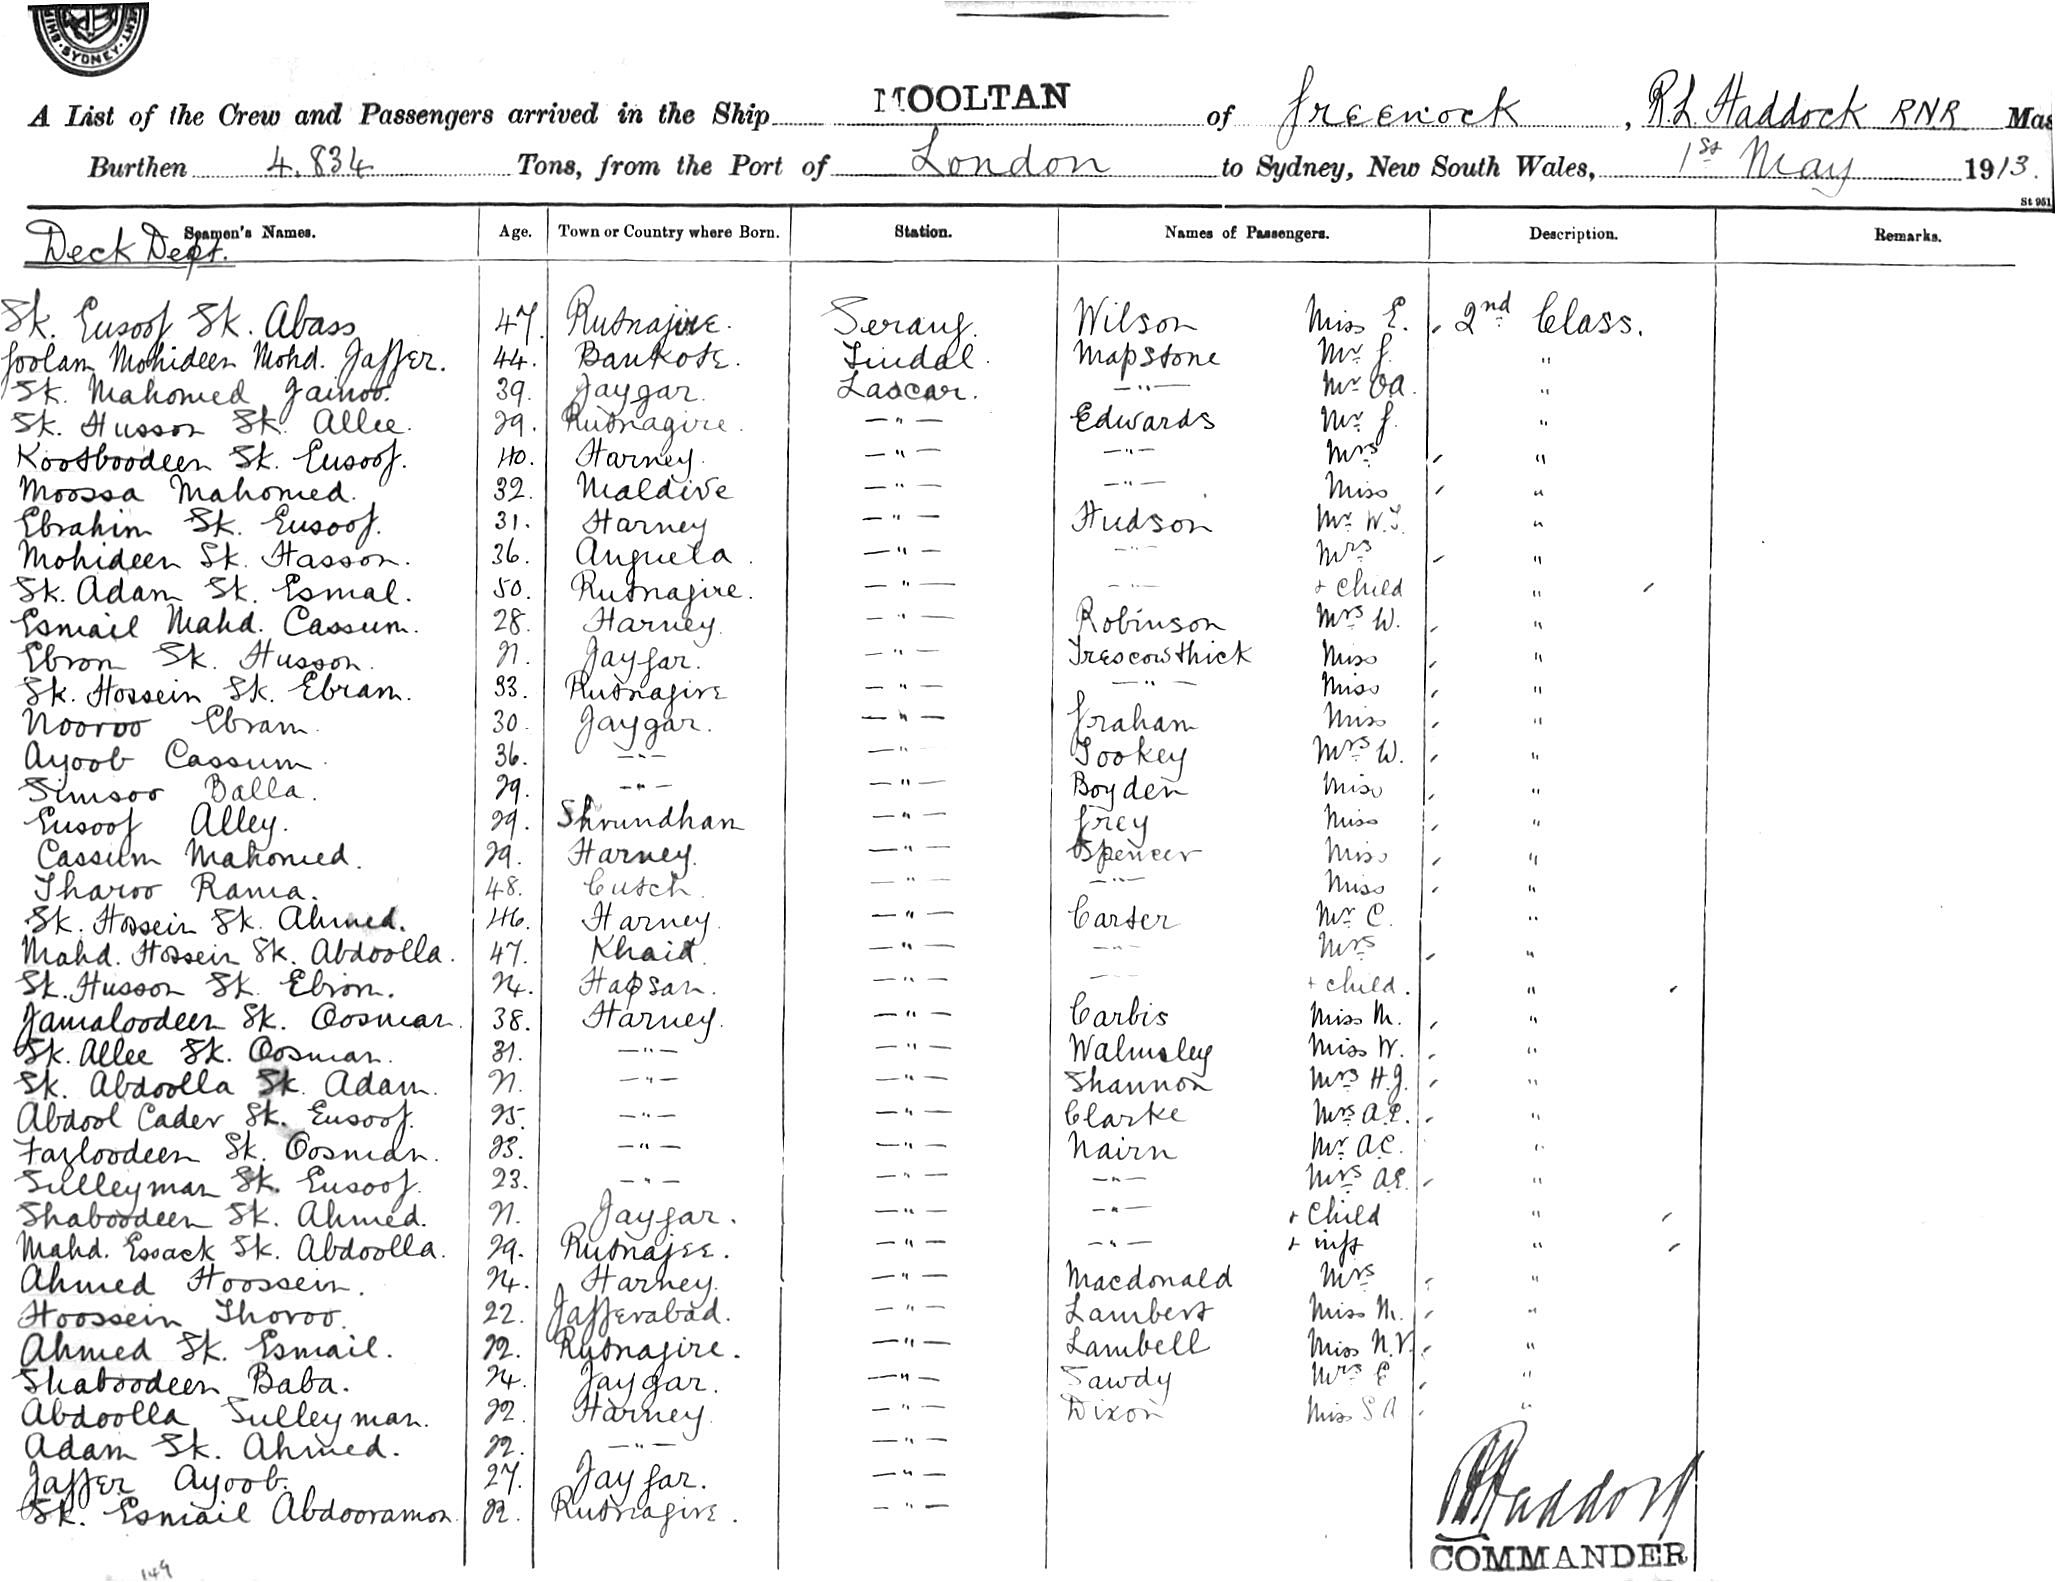 SYDNEY
A List of the Crew and Passengers arrived in the Ship MOOLTAN of Greenock, R.L. Haddock RNR Mas
Burthen 4,834 Tons, from the Port of London to Sydney, New South Wales, 1st May 1913.
St 951
Seamen's Names. Age. Town or Country where Born. Station. Names of Passengers. Description. Remarks.
Deck Dept.
Sk. Eusoof Sk. Abass 47. Rutnagire. Serang. Wilson Miss E. 2nd Class.
Goolam Mohideen Mohd. Jaffer. 44. Bankote. Tindal. Mapstone Mr J. "
Sk. Mahomed Jainoo. 39. Jaygar. Lascar. —"— Mr "
Sk. Husson Sk. Allee. 29. Rutnagire. —"— Edwards Mr J. "
Kootboodeen Sk. Eusoof. 40. Harney. —"— —"— Mrs "
Moossa Mahomed. 32. Maldive —"— —"— Miss "
Ebrahim Sk. Eusoof. 31. Harney —"— Hudson Mr W.T. "
Mohideen Sk. Hasson. 36. Anguela. —"— —"— Mrs "
Sk. Adam Sk. Esmal. 50. Rutnagire. —"— —"— + child "
Esmail Mahd. Cassum. 28. Harney. —"— Robinson Mrs W. "
Ebron Sk. Husson. 21. Jaygar. —"— Trescowthick Miss "
Sk. Hossein Sk. Ebram. 33. Rutnagire —"— —"— Miss "
Nooroo Ebram. 30. Jaygar. —"— Graham Miss "
Ayoob Cassum. 36. —"— —"— Tookey Mrs W. "
Simsoo Balla. 29. —"— —"— Boyden Miss "
Eusoof Alley. 29. Shrundhan —"— Grey Miss "
Cassum Mahomed. 29. Harney. —"— Spencer Miss "
Tharoo Rama. 48. Cutch. —"— —"— Miss "
Sk. Hossein Sk. Ahmed. 46. Harney. —"— Carter Mr C. "
Mahd. Hossein Sk. Abdoolla. 47. Khaid. —"— —"— Mrs "
Sk. Husson Sk. Ebron. 24. Hapsan. —"— —"— + child. "
Jamaloodeen Sk. Oosman. 38. Harney. —"— Carbis Miss M. "
Sk. Allee Sk. Oosman. 31. —"— —"— Walmsley Miss W. "
Sk. Abdoolla Sk. Adam. 21. —"— —"— Shannon Mrs H.J. "
Abdool Cader Sk. Eusoof. 25. —"— —"— Clarke Mrs A.E. "
Fazloodeen Sk. Oosman. 23. —"— —"— Nairn Mr A.C. "
Sulleyman Sk. Eusoof. 23. —"— —"— —"— Mrs A.E. "
Shaboodeen Sk. Ahmed. 21. Jaygar. —"— —"— + Child "
Mahd. Essack Sk. Abdoolla. 29. Rutnajee. —"— —"— + inft "
Ahmed Hoossein. 24. Harney. —"— Macdonald Mrs "
Hoossein Thoroo. 22. Jafferabad. —"— Lambert Miss M. "
Ahmed Sk. Esmail. 22. Rutnagire. —"— Lambell Miss N.V. "
Shaboodeen Baba. 24. Jaygar. —"— Sawdy Mrs E "
Abdoolla Sulleyman. 22. Harney. —"— Dixon Miss S A "
Adam Sk. Ahmed. 22. —"— —"—
Jaffer Ayoob. 27. Jaygar. —"—
Sk. Esmail Abdooramon. 22. Rutnagire. —"—
R L Haddock
COMMANDER
149